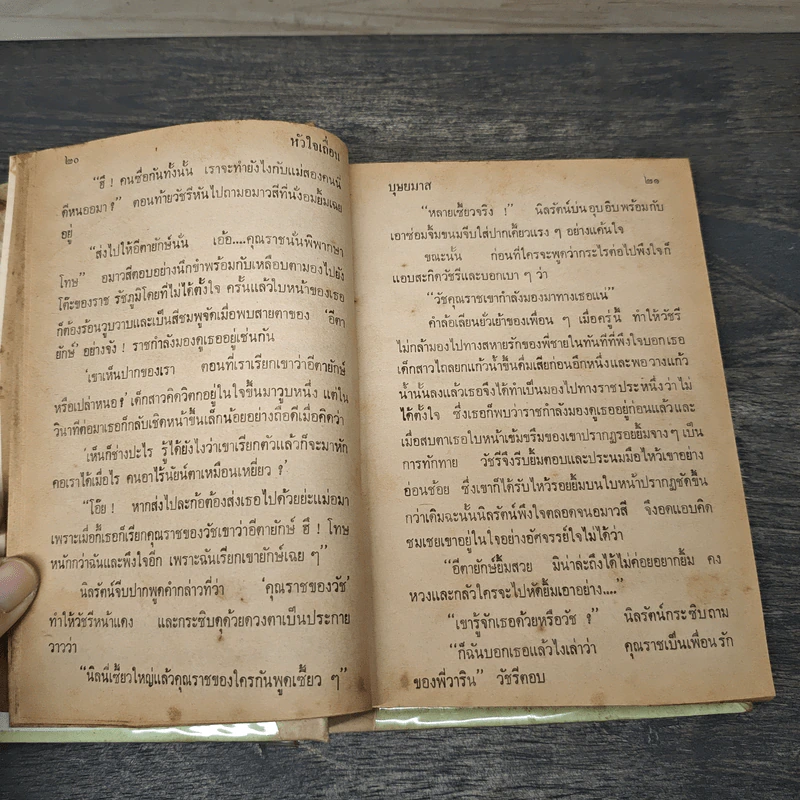 ๒๐
หัวใจเถื่อน
“ฮึ ! คนซื่อกันทั้งนั้น เราจะทำยังไงกับแม่สองคนนี้
ดีหนออมา ?” ตอนท้ายวัชรีหันไปถามอมาวสีที่นั่งอมยิ้มเฉย
อยู่
“ส่งไปให้อีตายักษ์นั่น เอ้อ....คุณราชนั่นพิพากษา
โทษ” อมาวสีตอบอย่างนึกขำพร้อมกับเหลือบตามองไปยัง
โต๊ะของราช รัชภูมิโดยที่ไม่ได้ตั้งใจ ครั้นแล้วใบหน้าของเธอ
ก็ต้องร้อนวูบวาบและเป็นสีชมพูจัดเมื่อพบสายตาของ ‘อีตา
ยักษ์’ อย่างจัง ! ราชกำลังมองดูเธออยู่เช่นกัน
‘เขาเห็นปากของเรา ตอนที่เราเรียกเขาว่าอีตายักษ์
หรือเปล่าหนอ?’ เด็กสาวคิดวิตกอยู่ในใจขึ้นมาวูบหนึ่ง แต่ใน
วินาทีต่อมาเธอก็กลับเชิดหน้าขึ้นเล็กน้อยอย่างถือดีเมื่อคิดว่า
‘เห็นก็ช่างปะไร รู้ได้ยังไงว่าเขาเรียกตัวแล้วก็จะมาหัก
คอเราได้เมื่อไร คนอาไร้นัยน์ตาเหมือนเหยี่ยว ?’
“โอ๊ย ! หากส่งไปละก้อต้องส่งเธอไปด้วยย่ะแม่อมา
เพราะเมื่อกี้เธอก็เรียกคุณราชของวัชเขาว่าอีตายักษ์ ฮึ ! โทษ
หนักกว่าฉันและพึงใจอีก เพราะฉันเรียกเขายักษ์เฉย ๆ”
นิลรัตน์จีบปากพูดคำกล่าวที่ว่า ‘คุณราชของวัช’
ทำให้วัชรีหน้าแดง และกระซิบดุด้วยดวงตาเป็นประกาย
วาวว่า
“นิลนี่เชี้ยวใหญ่แล้วคุณราชของใครกันพูดเชี้ยว ๆ”
บุษยมาส
๒๑
“หลายเชี้ยวจริง !” นิลรัตน์บ่นอุบอิบพร้อมกับ
เอาซ่อมจิ้มขนมจีบใส่ปากเคี้ยวแรง ๆ อย่างแค้นใจ
ขณะนั้น ก่อนที่ใครจะพูดว่ากระไรต่อไปพึงใจก็
แอบสะกิดวัชรีและบอกเบา ๆ ว่า
“วัชคุณราชเขากำลังมองมาทางเธอแน่”
คำล้อเลียนยั่วเย้าของเพื่อน ๆ เมื่อครู่นี้ ทำให้วัชรี
ไม่กล้ามองไปทางสหายรักของพี่ชายในทันทีที่พึงใจบอกเธอ
เด็กสาวไถลยกแก้วน้ำขึ้นดื่มเสียก่อนอีกหนึ่งและพอวางแก้ว
น้ำนั้นลงแล้วเธอจึงได้ทำเป็นมองไปทางราชประหนึ่งว่าไม่
ได้ตั้งใจ ซึ่งเธอก็พบว่าราชกำลังมองดูเธออยู่ก่อนแล้วและ
เมื่อสบตาเธอใบหน้าเข้มขรึมของเขาปรากฏรอยยิ้มจางๆ เป็น
การทักทาย วัชรีจึงรีบยิ้มตอบและประนมมือไหว้เขาอย่าง
อ่อนช้อย ซึ่งเขาก็ได้รับไหว้รอยยิ้มบนใบหน้าปรากฏชัดขึ้น
กว่าเดิมฉะนั้นนิลรัตน์พึงใจตลอดจนอมาวสี จึงอดแอบคิด
ชมเชยเขาอยู่ในใจอย่างอัศจรรย์ใจไม่ได้ว่า
“อีตายักษ์ยิ้มสวย มิน่าล่ะถึงได้ไม่ค่อยอยากยิ้ม คง
หวงและกลัวใครจะไปหัดยิ้มเอาอย่าง....”
“เขารู้จักเธอด้วยหรือวัช ?” นิลรัตน์กระซิบถาม
“ก็ฉันบอกเธอแล้วไงเล่าว่า คุณราชเป็นเพื่อนรัก
ของพี่วาริน” วัชรีตอบ